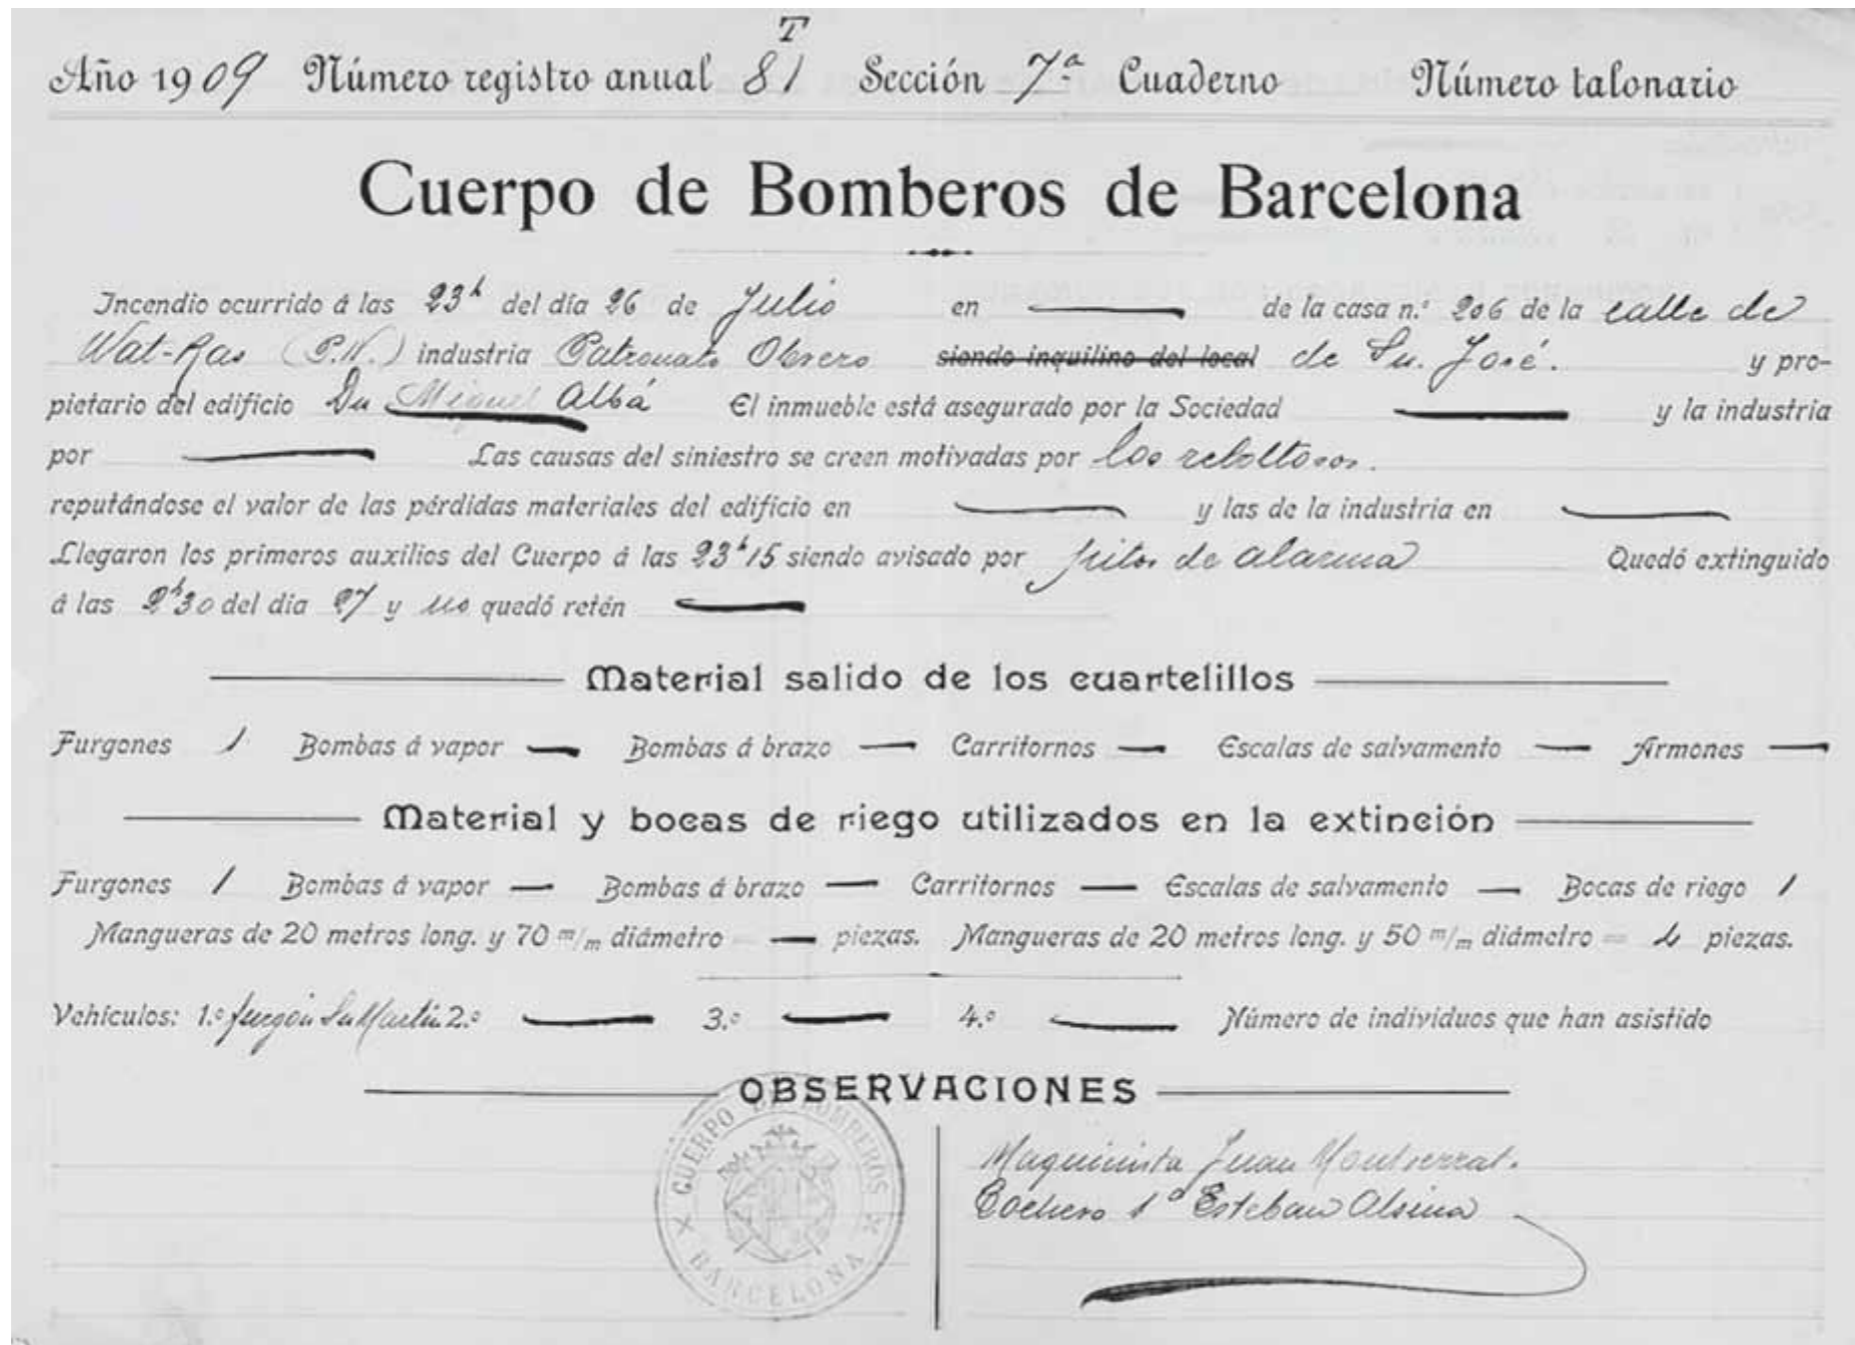 T
Año 1909 Número registro anual 81 Sección 7ª Cuaderno Número talonario
Cuerpo de Bomberos de Barcelona
Incendio ocurrido á las 23ʰ del día 26 de Julio en de la casa n.º 206 de la calle de
Wat-Ras (P.N.) industria Patronato Obrero siendo inquilino del local de Sn. José. y pro-
pietario del edificio Dn Miguel Albá El inmueble está asegurado por la Sociedad y la industria
por Las causas del siniestro se creen motivadas por los
reputándose el valor de las pérdidas materiales del edificio en y las de la industria en
Llegaron los primeros auxilios del Cuerpo á las 23ʰ15 siendo avisado por pitos de alarma Quedó extinguido
á las 2ʰ30 del día 27 y no quedó retén
Material salido de los cuartelillos
Furgones 1 Bombas á vapor — Bombas á brazo — Carritornos — Escalas de salvamento — Armones —
Material y bocas de riego utilizados en la extinción
Furgones 1 Bombas á vapor — Bombas á brazo — Carritornos — Escalas de salvamento — Bocas de riego 1
Mangueras de 20 metros long. y 70 m/m diámetro = — piezas. Mangueras de 20 metros long. y 50 m/m diámetro = piezas.
Vehículos: 1.º furgón Sn Martín 2.º — 3.º — 4.º — Número de individuos que han asistido
OBSERVACIONES
CUERPO DE BOMBEROS
BARCELONA
Maquinista Juan Montserrat.
Cochero 1º Esteban Alsina